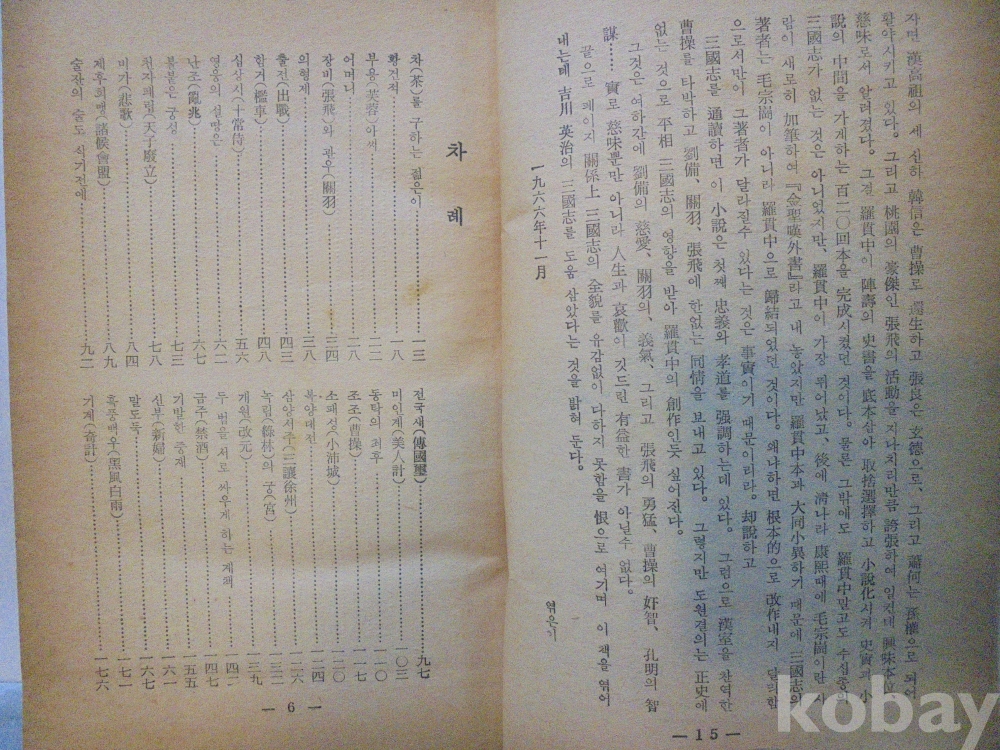 자면 漢高祖의 세 신하 韓信은 曹操로 還生하고 張良은 玄德으로, 그리고 蕭何는 孫權으로 되어
활약시키고 있다。 그리고 桃園의 豪傑인 張飛의 活動을 지나치리만큼 誇張하여 일컫데 興味本位
慈味로서 알려졌다。 그걸 羅貫中이 陣壽의 史書을 底本삼아 取捨選擇하고 小說化시켜 史實과 小
說의 中間을 가게하는 百二○回本을 完成시켰던 것이다。 물론 그밖에도 羅貫中말고도 수십종의
三國志가 없는 것은 아니었지만、羅貫中이 가장 뛰어났고、後에 淸나라 康熙때에 毛宗崗이란 사
람이 새로히 加筆하여 『金聖嘆外書』라고 내 놓았지만 羅貫中本과 大同小異하기 때문에 三國志의
著者는 毛宗崗이 아니라 羅貫中으로 歸結되었던 것이다。 왜냐하면 根本的으로 改作내지 달리함
으로서만이 그著者가 달라질수 있다는 것은 事實이기 때문이리라。 却說하고
三國志를 通讀하면 이 小說은 첫째 忠義와 孝道를 强調하는데 있다。 그럼으로 漢室을 찬역한
曹操를 타박하고 劉備、關羽、張飛에 한없는 同情을 보내고 있다。 그렇지만 도원결의는 正史에
없는 것으로 平相 三國志의 영향을 받아 羅貫中의 創作인듯 싶어진다。
그것은 여하간에 劉備의 慈愛、關羽의、義氣、그리고 張飛의 勇猛、曹操의 奸智、孔明의 智
謀…… 實로 慈味뿐만 아니라 人生과 哀歡이 깃드린 有益한 書가 아닐수 없다。
끝으로 페이지 關係上 三國志의 全貌를 유감없이 다하지 못함을 恨으로 여기며 이 책을 엮어
내는데 吉川 英治의 三國志를 도움 삼았다는 것을 밝혀 둔다。
一九六六年十一月
엮은이
— 15 —
차 례
차(茶)를 구하는 젊은이……一三
황건적……一八
부용(芙蓉)아씨……二二
어머니……二八
장비(張飛)와 관우(關羽)……三四
의형제……三八
출전(出戰)……四三
함거(檻車)……四八
십상시(十常侍)……五六
영웅의 실망은……六二
난조(亂兆)……六七
불붙은 궁성……七三
천자폐립(天子廢立)……七八
비가(悲歌)……八四
제후회맹(諸候會盟)……八九
술잔의 술도 식기전에……九二
전국새(傳國璽)……九七
미인계(美人計)……一○三
동탁의 최후……一一○
조조(曹操)……一一七
소패성(小沛城)……一二○
복양대전……一二四
삼양서주(三讓徐州)……一二六
녹림(綠林)의 궁(宮)……一三二
개원(改元)……一三九
두 범을 서로 싸우게 하는 계책……一四二
금주(禁酒)……一四七
기발한 중재……一五五
신부(新婦)……一六一
말도둑……一六七
흑풍백우(黑風白雨)……一七一
기계(奇計)……一七六
— 6 —
kobay